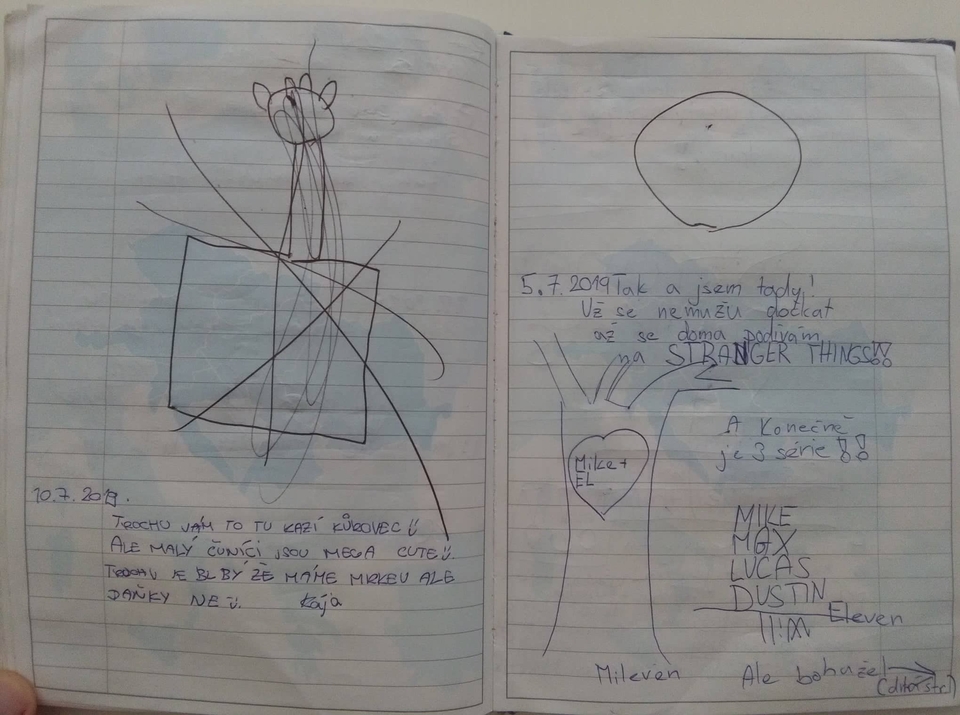 10.7.2019.
TROCHU VÁM TO TU KAZÍ KŮROVEC
ALE MALÝ ČUNÍCI JSOU MEGA CUTE
TROCHU JE BLBÝ ŽE MÁME MRKEV ALE
DAŇKY NE Kája
5.7.2019 Tak a jsem tady!
Už se nemužu dočkat
až se doma podívám
na STRANGER THINGS!!
A Konečně
je 3 série!!
Mike +
EL
MIKE
MAX
LUCAS
DUSTIN
Eleven
Mileven
Ale bohužel